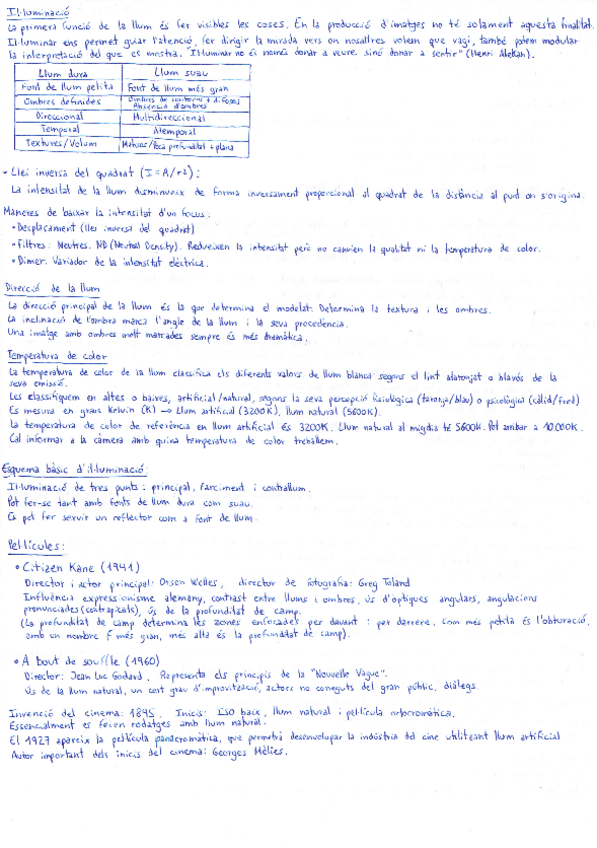 Il·luminació
La primera funció de la llum és fer visibles les coses. En la producció d'imatges no té solament aquesta finalitat.
Il·luminar ens permet guiar l'atenció, fer dirigir la mirada vers on nosaltres volem que vagi, també podem modular
la interpretació del que es mostra. "Il·luminar no és només donar a veure, sinó donar a sentir" (Henri Alekan).
Llum dura Llum suau
Font de llum petita Font de llum més gran
Ombres definides Ombres de contorn + difoses Absència d'ombres
Direccional Multidireccional
Temporal Atemporal
Textures/Volum Matisos/Poca profunditat + plana
• Llei inversa del quadrat (I = A/r²):
La intensitat de la llum disminueix de forma inversament proporcional al quadrat de la distància al punt on s'origina.
Maneres de baixar la intensitat d'un focus:
• Desplaçament (llei inversa del quadrat)
• Filtres: Neutres. ND (Neutral Density). Redueixen la intensitat però no canvien la qualitat ni la temperatura de color.
• Dimer. Variador de la intensitat elèctrica.
Direcció de la llum
La direcció principal de la llum és la que determina el modelat. Determina la textura i les ombres.
La inclinació de l'ombra marca l'angle de la llum i la seva procedència.
Una imatge amb ombres molt marcades sempre és més dramàtica.
Temperatura de color
La temperatura de color de la llum classifica els diferents valors de llum blanca segons el tint ataronjat o blavós de la
seva emissió.
Les classifiquem en altes o baixes, artificial/natural, segons la seva percepció fisiològica (taronja/blau) o psicològica (càlid/fred)
Es mesura en graus Kelvin (K) → Llum artificial (3200K), llum natural (5600K).
La temperatura de color de referència en llum artificial és 3200K. Llum natural al migdia té 5600K. Pot arribar a 10.000K.
Cal informar a la càmera amb quina temperatura de color treballem.
Esquema bàsic d'il·luminació:
Il·luminació de tres punts: principal, farciment i contrallum.
Pot fer-se tant amb fonts de llum dura com suau.
Es pot fer servir un reflector com a font de llum.
Pel·lícules:
• Citizen Kane (1941)
Director i actor principal: Orson Welles, director de fotografia: Greg Toland
Influència expressionisme alemany, contrast entre llums i ombres, ús d'òptiques angulars, angulacions
pronunciades (contrapicats), ús de la profunditat de camp.
(La profunditat de camp determina les zones enfocades per davant i per darrere, com més petita és l'obturació,
amb un nombre f més gran, més alta és la profunditat de camp).
• À bout de souffle (1960)
Director: Jean Luc Godard. Representa els principis de la "Nouvelle Vague".
Ús de la llum natural, un cert grau d'improvització, actors no coneguts del gran públic, diàlegs.
Invenció del cinema: 1895. Inicis: ISO baix, llum natural i pel·lícula ortocromàtica.
Essencialment es feien rodatges amb llum natural.
El 1927 apareix la pel·lícula pancromàtica, que permetrà desenvolupar la indústria del cine utilitzant llum artificial
Autor important dels inicis del cinema: Georges Méliès.